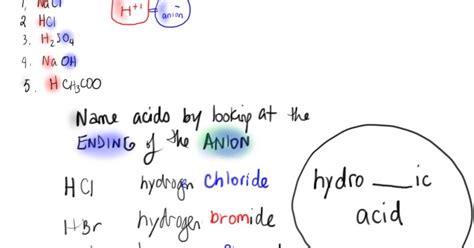 1. NaCl
2 HCl
3. H₂SO₄
4. NaOH
5. HCH₃COO
H⁺¹ anion⁻
Name acids by looking at the
ENDING of the ANION
HCl hydrogen chloride
HBr hydrogen bromide
hydro ___ ic
acid